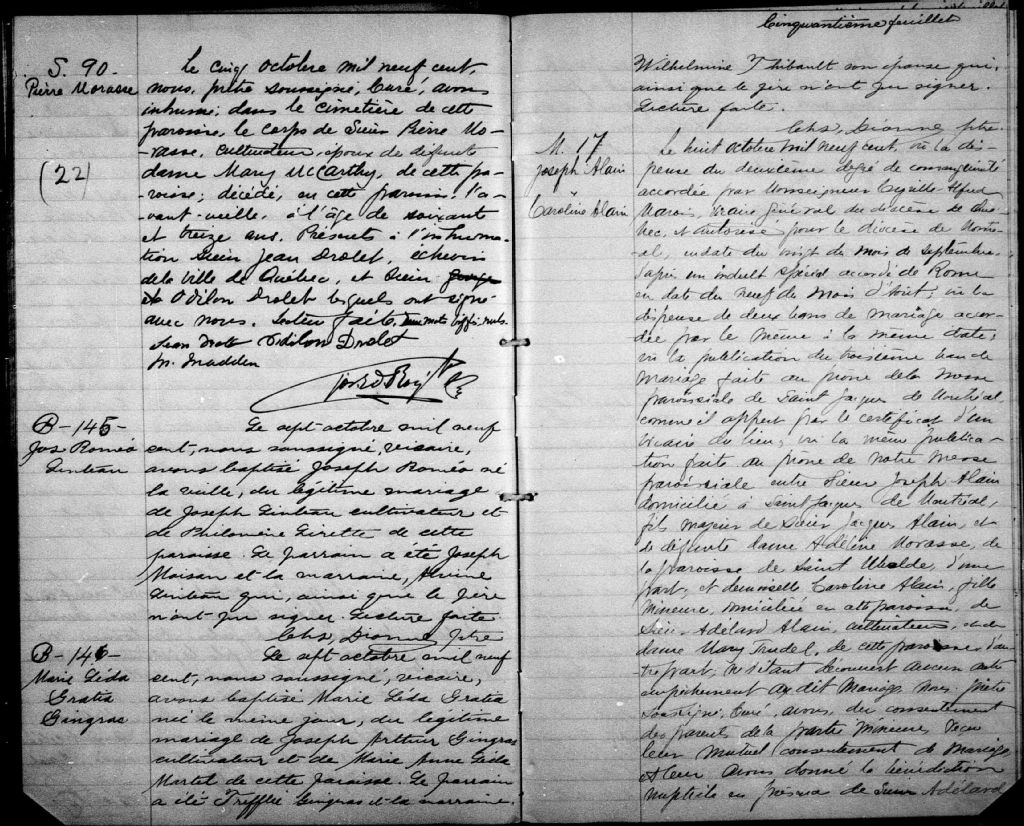 S. 90.
Pierre Morasse
(22)
Le cinq octobre mil neuf cent,
nous, prêtre soussigné, Curé, avons
inhumé, dans le cimetière de cette
paroisse, le corps de Sieur Pierre Mo-
rasse, cultivateur, époux de défunte
dame Mary McCarthy, de cette pa-
roisse; décédé, en cette paroisse l'a-
vant-veille, à l'âge de soixante
et treize ans. Présents à l'inhuma-
tion Sieur Jean Drolet, échevin
de la ville de Québec, et Sieur
Odilon Drolet lesquels ont signé
avec nous. Lecture faite.
Jean Drolet Odilon Drolet
M. Madden
B-145-
Jos Roméo
Linteau
Le sept octobre mil neuf
cent, nous soussigné, vicaire,
avons baptisé Joseph Roméo né
la veille, du légitime mariage
de Joseph Linteau cultivateur et
de Philomène Lirette de cette
paroisse. Le parrain a été Joseph
Moisan et la marraine,
Linteau qui, ainsi que le père
n'ont pu signer. Lecture faite
Chs, Dionne, ptre
B-146-
Marie Léda
Gratia
Gingras
Le sept octobre mil neuf
cent, nous soussigné, vicaire,
avons baptisé Marie Léda Gratia
née le même jour, du légitime
mariage de Joseph Arthur Gingras
cultivateur et de Marie Anne Léda
Martel de cette paroisse. Le parrain
a été Trefflé Gingras et la marraine.
Cinquantième feuillet
Wilhelmine Thibault son épouse qui,
ainsi que le père n'ont pu signer.
Lecture faite.
Chs, Dionne ptre.
M. 17
Joseph Alain
&
Caroline Alain
Le huit octobre mil neuf cent, vu la dis-
pense du deuxième degré de consanguinité
accordée par Monseigneur Cyrille Alfred
Marois, vicaire général du diocèse de Qué-
bec, et autorisé pour le diocèse de Mont-
éal, en date du vingt du mois de septembre,
d'après un indult spécial accordé de Rome
en date du neuf du mois d'août; vu la
dispense de deux bans de mariage accor-
dée par le même à la même date;
vu la publication du troisième ban de
mariage faite au prône de la messe
paroissiale de Saint Jacques de Montréal
comme il appert par le certificat d'un
vicaire du lieu; vu la même publica-
tion faite au prône de notre messe
paroissiale entre Sieur Joseph Alain
domicilié à Saint Jacques de Montréal,
fils majeur de Sieur Jacques Alain, et
de défunte dame Adéline Morasse, de
la paroisse de Saint Ubalde, d'une
part, et demoiselle Caroline Alain, fille
mineure, domiciliée en cette paroisse, de
Sieur Adélard Alain, cultivateur, et de
dame Mary Trudel, de cette paroisse d'au-
tre part, ne s'étant découvert aucun autre
empêchement au dit mariage, Nous, prêtre
soussigné, Curé, avons, du consentement
des parents de la partie mineure, reçu
leur mutuel consentement de mariage
et leur avons donné la bénédiction
nuptiale en présence de Sieur Adélard